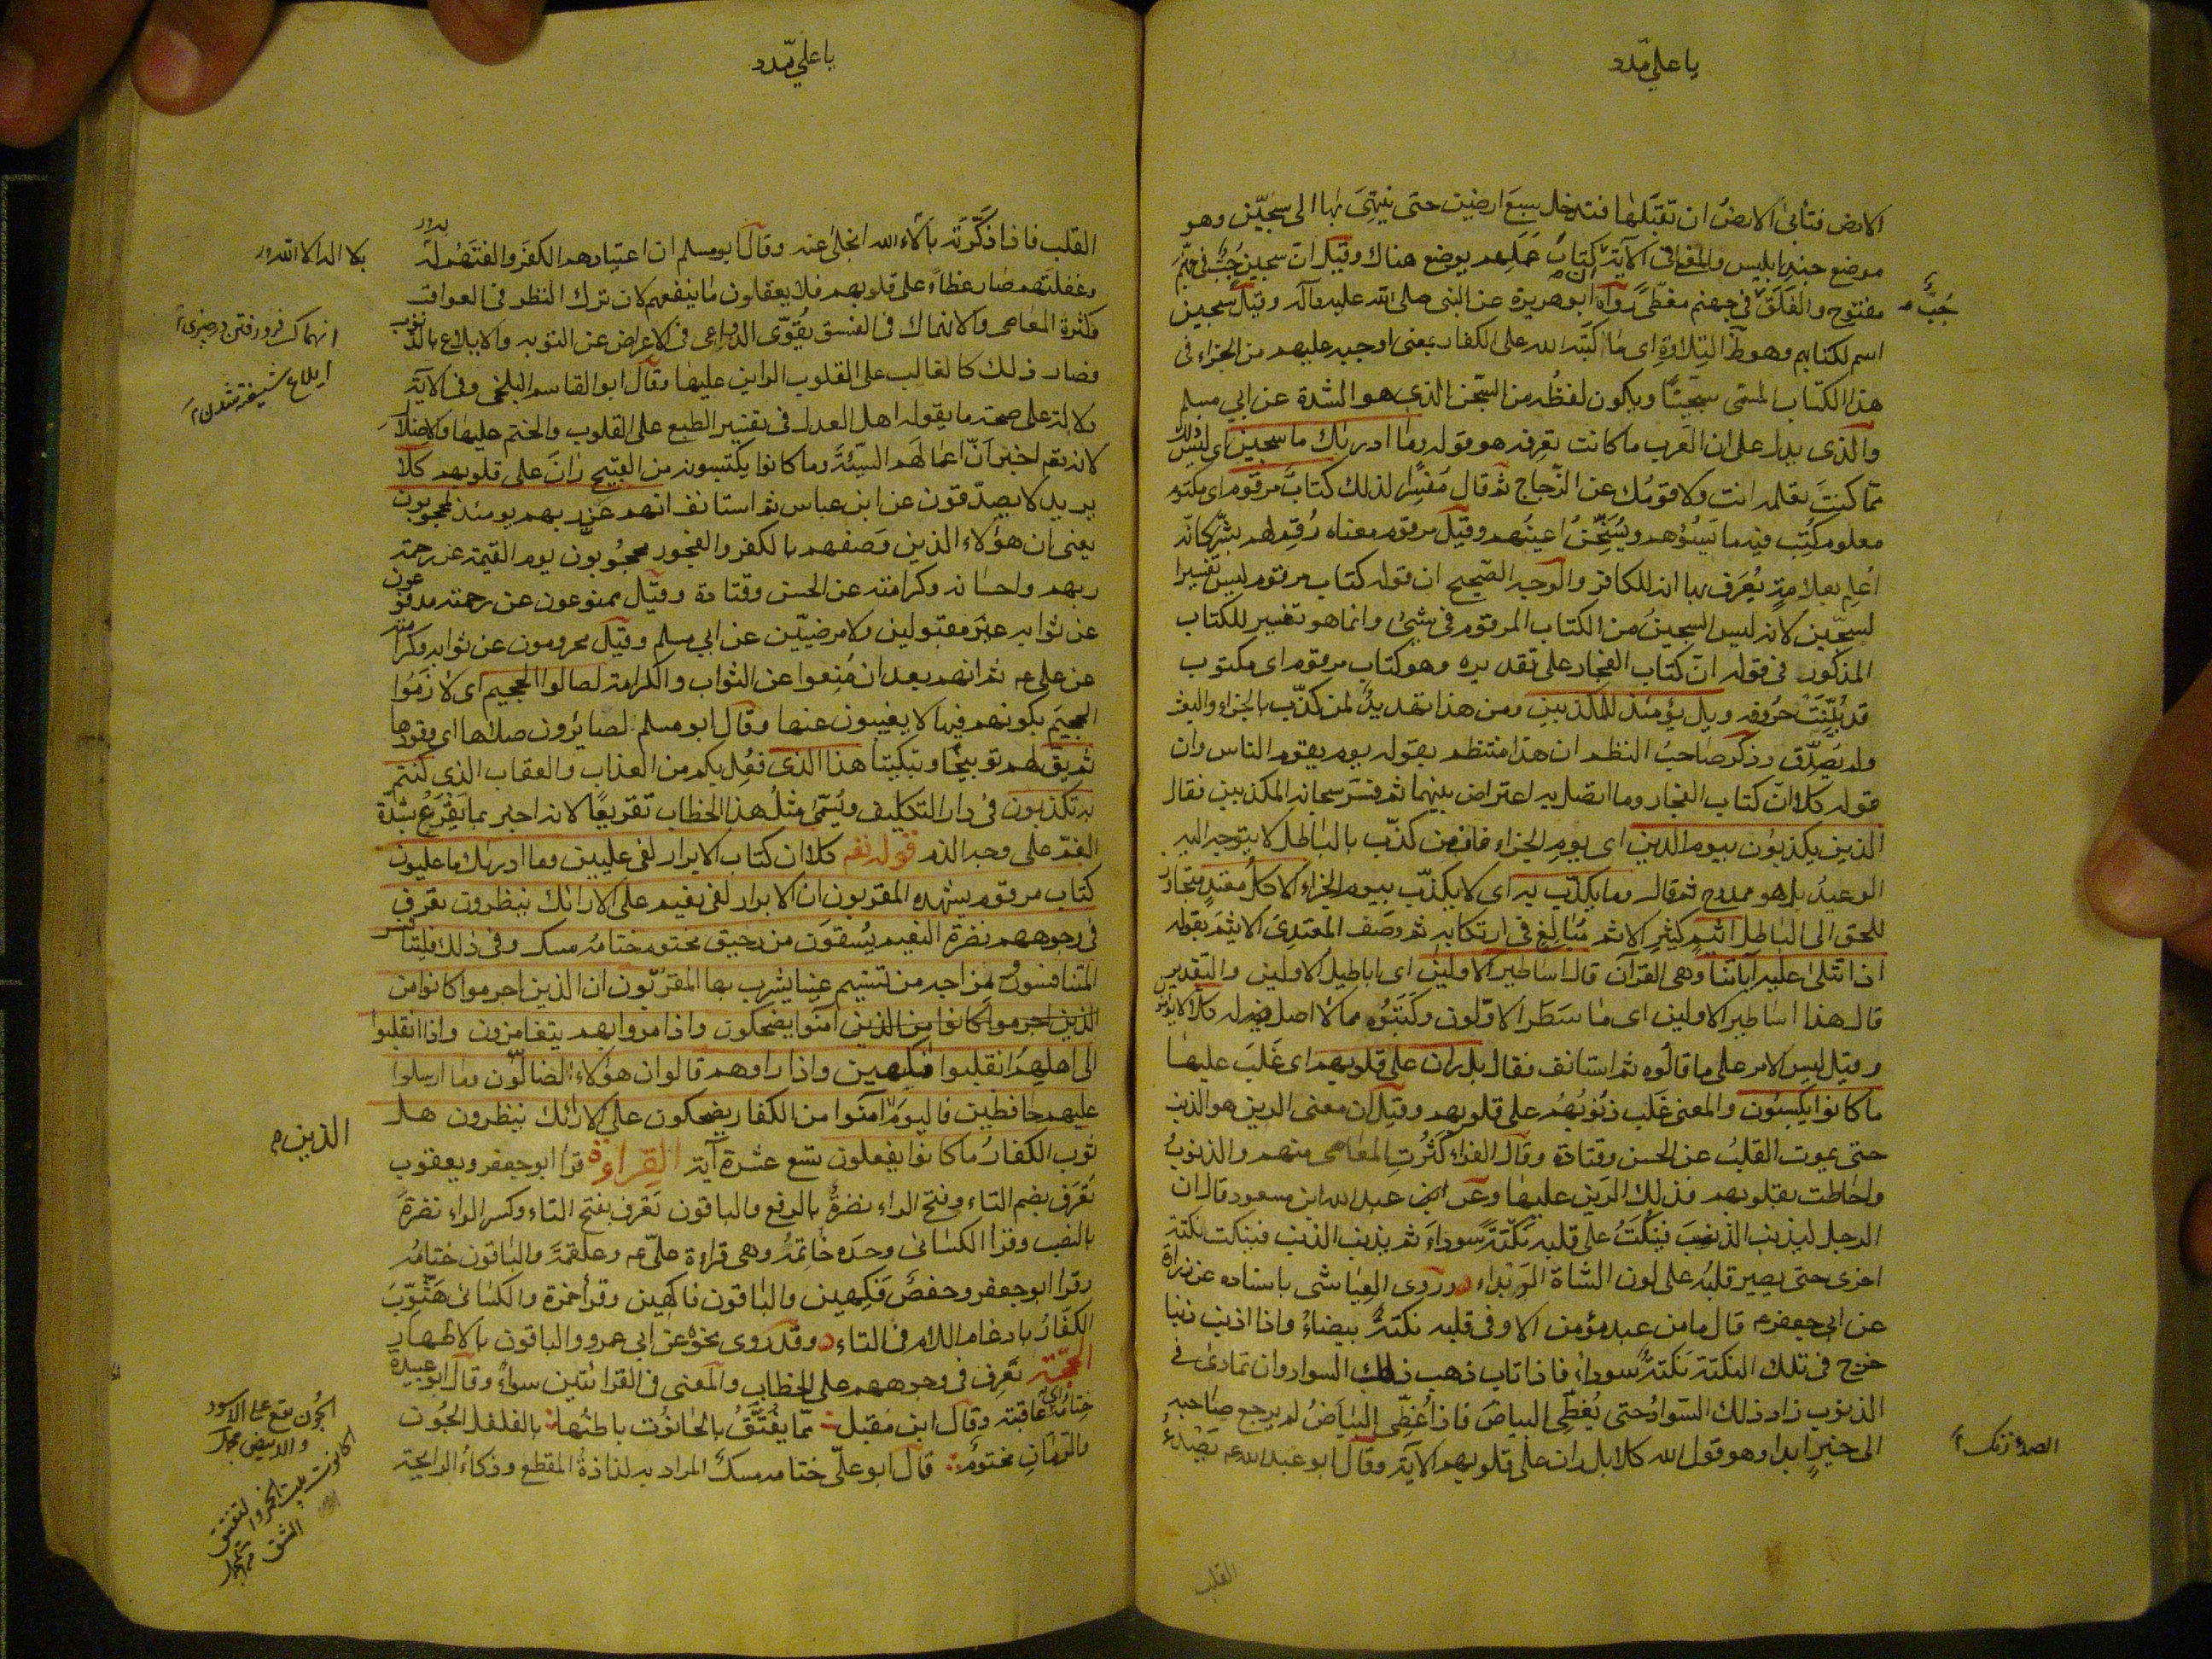 يا علي مدد
الارض فتأبى الارض ان تقبلها فتدخل سبع ارضين حتى ينتهى بها الى سجّين وهو
موضع جند ابليس والمعنى فى الآية ان كتاب عملهم يوضع هناك وقيل ان سجين جُبّ فى جهنّم
جُبّ
مفتوح والفلق فى جهنم مغطّى رواه ابو هريرة عن النبى صلى الله عليه وآله وقيل سجين
اسم لكتابهم وهو ظاهر التلاوة اى ما كتبه الله على الكفار بمعنى اوجبه عليهم من الجزاء فى
هذا الكتاب المسمّى سجّينًا ويكون لفظه من السّجن الذى هو الشدة عن ابي مسلم
والذى يدل على ان العرب ما كانت تعرفه هو قوله وما ادريك ما سجين اى ليس ذلك
ممّا كنت تعلمه انت ولا قومك عن الزّجاج ثم قال مفسّرا لذلك كتاب مرقوم اى مكتوب
معلوم كُتب فيه ما يسؤهم ويُسَخِّنُ اعينهم وقيل مرقوم معناه رُقِم لهم بشرّ كانّه
اعلم بعلامة يُعرَف بها انه للكافر والوجه الصّحيح ان قوله كتاب مرقوم ليس تفسيرا
لسجّين لانه ليس السجين من الكتاب المرقوم فى شئ وانما هو تفسير للكتاب
المذكور فى قوله انّ كتاب الفجار على تقدير وهو كتاب مرقوم اى مكتوب
قد بُيّنت حُروفه ويل يؤمئذ للمكذبين ومن هذا تهديد لمن كذّب بالجزاء والبعث
ولم يُصدّق وذكر صاحب النظم ان هذا منتظم بقوله يوم يقوم الناس وان
قوله كلا انّ كتاب الفجار وما اتصل به اعتراض بينهما ثم فسّر سبحانه المكذبين فقال
الذين يكذبون بيوم الدين اى يوم الجزاء فان من كذّب بالباطل لا يتوجه اليه
الوعيد بل هو ممدوح ثم قال وما يكذّب به اى لا يكذّب بيوم الجزاء الا كل معتد متجاوز
للحق الى الباطل اثيم كثير الاثم مُبالغ فى ارتكابه ثم وصف المعتدى الاثيم بقوله
اذا تتلى عليه آياتنا وهى القرآن قال اساطير الاولين اى اباطيل الاولين والتقدير
قال هذا اساطير الاولين اى ما سَطَر الاوّلون وكتبوه مما لا اصل له كلا لا يؤمنون
وقيل ليس الامر على ما قالوه ثم استانف فقال بل ران على قلوبهم اى غَلَب عليها
ما كانوا يكسبون والمعنى غَلَب ذنوبهم على قلوبهم وقيل ان معنى الرين هو الذنب
حتى يموت القلب عن الحسن وقتادة وقال الفراء كَثُرت المعاصى منهم والذنوب
واحاطت بقلوبهم فذلك الرَين عليها وعن عبد الله ابن مسعود قال ان
الرجل ليذنب الذنب فينكت على قلبه نكتةٌ سوداء ثم يذنب الذنب فينكت نكتة
اخرى حتى يصير قلبه على لون الشاة الربداء وروى العياشى باسناده عن زرارة
عن ابى جعفر م قال ما من عبد مؤمن الا وفى قلبه نكتةٌ بيضاء واذا اذنب ذنبا
خرج فى تلك النكتة نكتةٌ سوداء فاذا تاب ذهب ذلك السواد وان تمادى فى
الذنوب زاد ذلك السّواد حتى يُغطّى البياض فاذا غُطِّى البياض لم يرجع صاحبه
الى خير ابدا وهو قول الله كلا بل ران على قلوبهم الآية وقال ابو عبد الله م يَصْدَءُ
الصدء زنك
القلب
يا علي مدد
القلب فاذا ذكّرته بآلاء الله انجلى عنه وقال ابو مسلم ان اعتيادهم الكفر والفتهم له
بلا اله الا الله
وغفلتهم صار غطاءً على قلوبهم فلا يعقلون ما ينفعهم لان ترك النظر فى العواقب
وكثرة المعاصى والانهماك فى الفسق يُقوّى الدواعى فى الاعراض عن التوبه والايلاع بالذنوب
انهماك فرو رفتن در چيزى
فصار ذلك كالغالب على القلوب الراين عليها وقال ابو القاسم البلخى وفى الآية
ايلاع شيفته شدن
دلالة على صحة ما يقوله اهل العدل فى تفسير الطبع على القلوب والختم عليها والاضلال
لانه تع اخبر انّ اعمالهم السّيئة وما كانوا يكتسبون من القبيح رَانَ على قلوبهم كلا
يريد لا يصدّقون عن ابن عباس ثم استانف انهم عن ربهم يومئذ لمحجوبون
يعنى ان هؤلاء الذين وَصَفهم بالكفر والفجور محجُوبون يوم القيمة عن رحمة
ربهم واحسانه وكرامته عن الحسن وقتادة وقيل ممنوعون عن رحمته مدفوعون
عن ثوابه غير مقبولين ولا مرضيّين عن ابي مسلم وقيل محرومون عن ثوابه وكرامته
عن على م ثم انهم بعد ان مُنِعوا عن الثواب والكرامة لصالوا الجحيم اى لازَمُوا
الجحيم بكونهم فيها لا يغيبون عنها وقال ابو مسلم لصايرون صلاها اى وقودها
ثم يق لهم توبيخًا وتبكيتًا هذا الذى فُعِل بكم من العذاب والعقاب الذى كنتم
به تكذبون فى دار التكليف ويُسمّى مثلُ هذا الخطاب تقريعًا لانه اخبر بما يَقْرَعُ بشدّة
الغمّ على وجه الذم قوله تعم كلا ان كتاب الابرار لفى عليين وما ادريك ما عليون
كتاب مرقوم يشهده المقربون ان الابرار لفى نعيم على الارائك ينظرون تعرف
فى وجوههم نضرة النعيم يُسقون من رحيق مختوم ختامُه مسك وفى ذلك فليتنافس
المتنافسون ومزاجه من تسنيم عينا يشرب بها المقرّبون ان الذين اجرموا كانوا من
الذين اجرموا كانوا من الذين آمنوا يضحكون واذا مروا بهم يتغامزون واذا انقلبوا
الى اهلهم انقلبوا فكهين واذا راوهم قالوا ان هؤلاء لضالّون وما ارسلوا
عليهم حافظين فاليوم آمنوا من الكفار يضحكون على الارائك ينظرون هل
الذين
ثوب الكفارُ ما كانوا يفعلون تسع عشرة آية القراءة قرا ابو جعفر ويعقوب
تُعْرَف بضم التاء وفتح الراء نضرةُ بالرفع والباقون تَعرف بفتح التاء وكسر الراء نضرةَ
بالنصب وقرا الكسائى وحدَه خَاتمُه وهى قراءة علىّ م وعلقمة والباقون ختامُه
وقرا ابو جعفر وحفصٌ فَكِهين والباقون فاكهين وقرأ حمزة والكسائى هَثُّوّبَ
الكفّارُ بادغام اللام فى التاء وقد روى نحوه عن ابي عمرو والباقون بالاظهار
الحجّة تعرف فى وجوههم على الخطاب والمعنى فى القرائتين سواءٌ وقال ابو عبيدة
ختامُه اى عاقبته وقال ابن مقبل ممّا يُفَتَّقُ بالحانوت باطنُها بالفلفل الجُون
الجُون يقع على الاسود والابيض
والرمّان مختومٌ قال ابو علىّ ختامه مسكٌ المراد به لذاذةُ المقطع وذكاءُ الرايحة